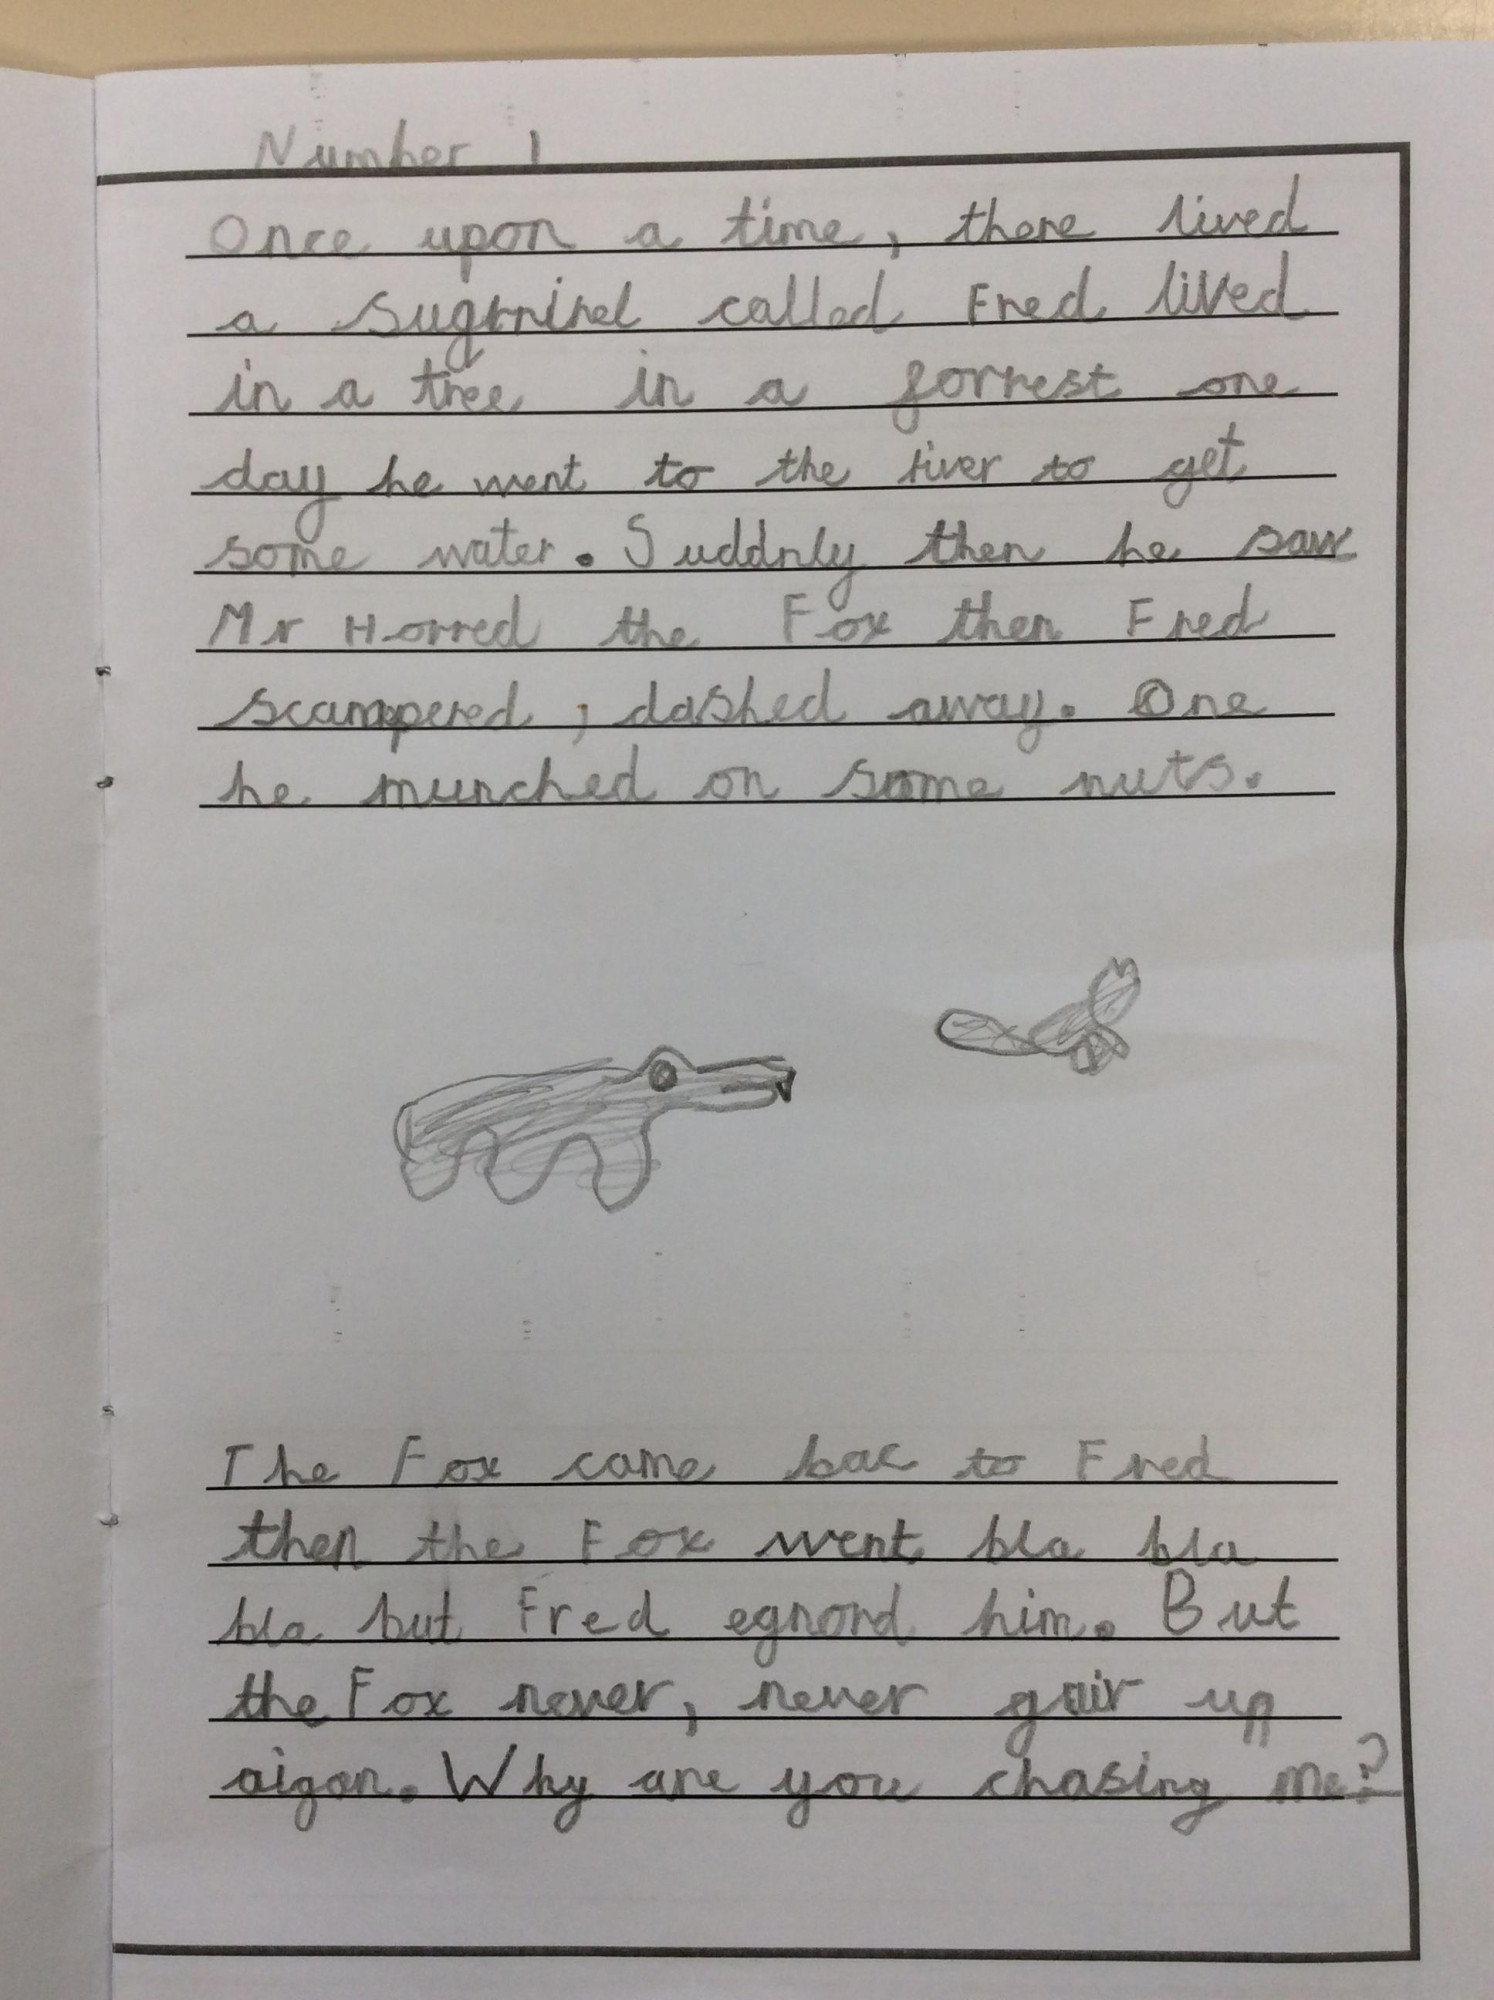 Number 1
Once upon a time, there lived
a sugrrirel called Fred lived
in a tree in a forrest one
day he went to the river to get
some water. Suddnly then he saw
Mr Horred the Fox then Fred
scampered, dashed away. One
he munched on some nuts.
The Fox came bac to Fred
then the Fox went bla bla
bla but Fred egnord him. But
the Fox never, never gair up
aigan. Why are you chasing me?